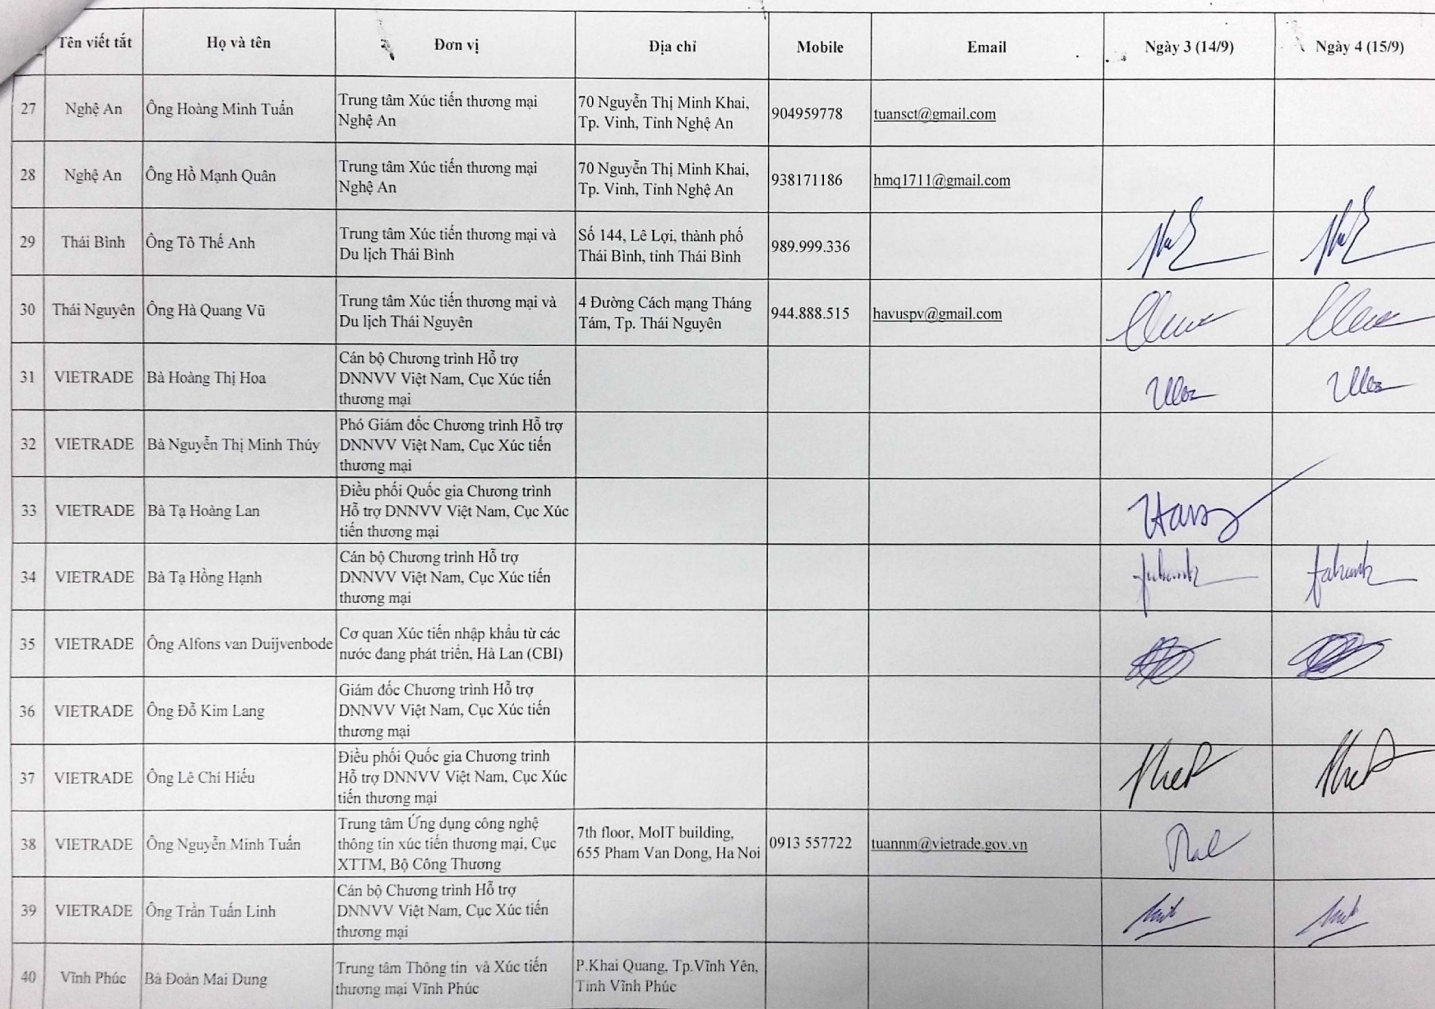 Tên viết tắt Họ và tên Đơn vị Địa chỉ Mobile Email Ngày 3 (14/9) Ngày 4 (15/9)
27 Nghệ An Ông Hoàng Minh Tuấn Trung tâm Xúc tiến thương mại
Nghệ An 70 Nguyễn Thị Minh Khai,
Tp. Vinh, Tỉnh Nghệ An 904959778 tuansct@gmail.com
28 Nghệ An Ông Hồ Mạnh Quân Trung tâm Xúc tiến thương mại
Nghệ An 70 Nguyễn Thị Minh Khai,
Tp. Vinh, Tỉnh Nghệ An 938171186 hmq1711@gmail.com
29 Thái Bình Ông Tô Thế Anh Trung tâm Xúc tiến thương mại và
Du lịch Thái Bình Số 144, Lê Lợi, thành phố
Thái Bình, tỉnh Thái Bình 989.999.336
30 Thái Nguyên Ông Hà Quang Vũ Trung tâm Xúc tiến thương mại và
Du lịch Thái Nguyên 4 Đường Cách mạng Tháng
Tám, Tp. Thái Nguyên 944.888.515 havuspv@gmail.com
31 VIETRADE Bà Hoàng Thị Hoa Cán bộ Chương trình Hỗ trợ
DNNVV Việt Nam, Cục Xúc tiến
thương mại
32 VIETRADE Bà Nguyễn Thị Minh Thúy Phó Giám đốc Chương trình Hỗ trợ
DNNVV Việt Nam, Cục Xúc tiến
thương mại
33 VIETRADE Bà Tạ Hoàng Lan Điều phối Quốc gia Chương trình
Hỗ trợ DNNVV Việt Nam, Cục Xúc
tiến thương mại
34 VIETRADE Bà Tạ Hồng Hạnh Cán bộ Chương trình Hỗ trợ
DNNVV Việt Nam, Cục Xúc tiến
thương mại
35 VIETRADE Ông Alfons van Duijvenbode Cơ quan Xúc tiến nhập khẩu từ các
nước đang phát triển, Hà Lan (CBI)
36 VIETRADE Ông Đỗ Kim Lang Giám đốc Chương trình Hỗ trợ
DNNVV Việt Nam, Cục Xúc tiến
thương mại
37 VIETRADE Ông Lê Chí Hiếu Điều phối Quốc gia Chương trình
Hỗ trợ DNNVV Việt Nam, Cục Xúc
tiến thương mại
38 VIETRADE Ông Nguyễn Minh Tuấn Trung tâm Ứng dụng công nghệ
thông tin xúc tiến thương mại, Cục
XTTM, Bộ Công Thương 7th floor, MoIT building,
655 Pham Van Dong, Ha Noi 0913 557722 tuannm@vietrade.gov.vn
39 VIETRADE Ông Trần Tuấn Linh Cán bộ Chương trình Hỗ trợ
DNNVV Việt Nam, Cục Xúc tiến
thương mại
40 Vĩnh Phúc Bà Đoàn Mai Dung Trung tâm Thông tin và Xúc tiến
thương mại Vĩnh Phúc P.Khai Quang, Tp.Vĩnh Yên,
Tỉnh Vĩnh Phúc